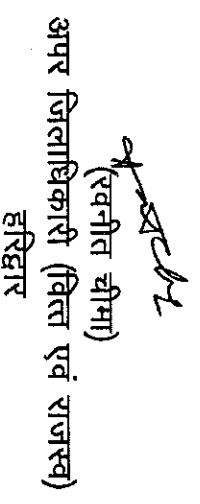 (रवनीत चीमा)
अपर जिलाधिकारी (वित्त एवं राजस्व)
हरिद्वार